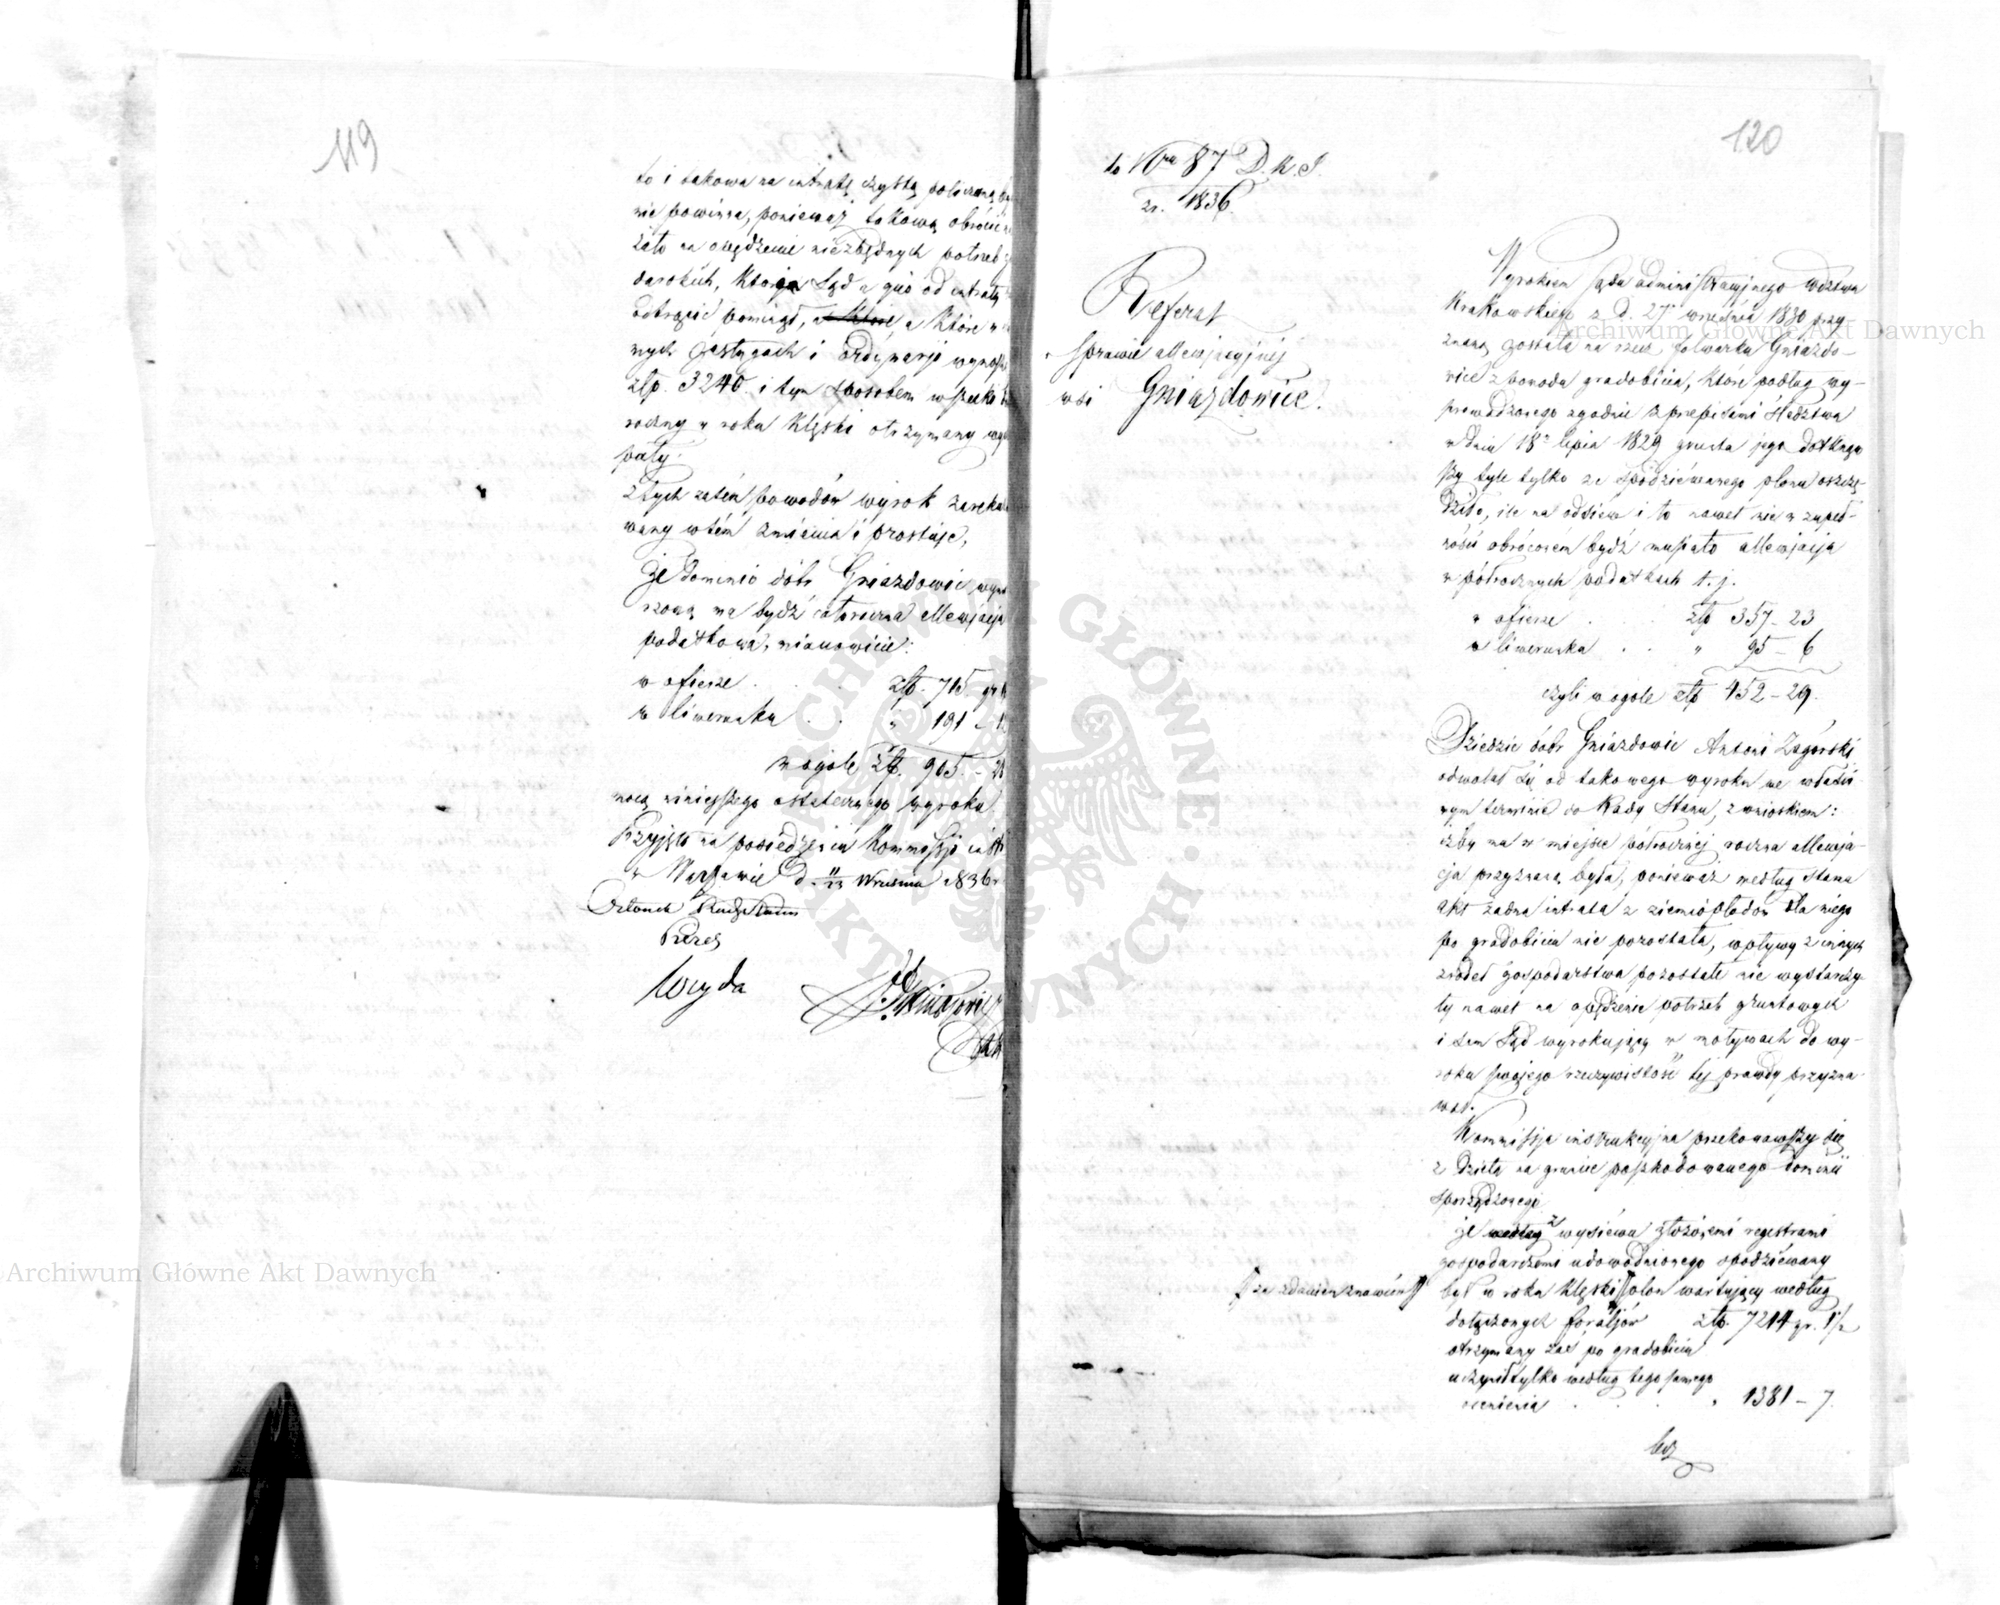 119
to i takowa na intratę czystą policzoną
nie powinna, ponieważ takową obrócić
na opędzenie niezbędnych potrzeb
darskich, które Sąd a quo od intraty
odtrącić pominął, a które w
nych zasługach i ordynarji wynoszą
złp. 3240. i tym sposobem wszelki
roczny w roku klęski otrzymany
party.
Z tych zatém powodów wyrok
wany w tém zmienia i prostuje,
że Dominio dóbr Gniazdowic
ma bydź całoroczna allewjacja
podatkowa, mianowicie:
w ofierze . . złp. 715. gr
w liwerunku . . " 191 -
w ogóle złp. 905. - 26
mocą niniejszego ostatecznego wyroku.
Przyjęto na posiedzeniu Kommissji
w Warszawie d. 11/23 Września 1836 r
Prezes
Woyda
120
do Nru 87 D.K.I.
z r. 1836.
Referat
w sprawie allewjacyjnej
wsi Gniazdowice.
Wyrokiem Sądu administracyjnego Wdztwa
Krakowskiego z d. 27 września 1830 przy
znaną została na rzecz folwarku Gniazdo-
wice z powodu gradobicia, które podług wy-
prowadzonego zgodnie z przepisami śledztwa
w dniu 18 lipca 1829 grunta jego dotknąw
szy tyle tylko ze spodziéwanego plonu oszczę
dziło, ile na odsiew i to nawet nie w zupeł-
ności obrócorem bydź musiało allewjacja
w półrocznych podatkach t.j.
w ofierze . . złp 357 - 23
w liwerunku . . " 95 - 6
czyli w ogóle złp 452 - 29.
Dziedzic dóbr Gniazdowic Antoni Zagórski
odwołał się od takowego wyroku we właści
wym terminie do Rady Stanu, z wnioskiem:
żeby mu w miejsce półrocznéj roczna allewja-
cja przyznaną była, ponieważ według stanu
akt żadna intrata z ziemiopłodów dla niego
po gradobiciu nie pozostała, wpływy z innych
źródeł gospodarstwa pozostałe nie wystarczy
ły nawet na opędzenie potrzeb gruntowych
i sam Sąd wyrokujący w motywach do wy-
roku swojego rzeczywistość tej prawdy przyzna
wał.
Kommissja instrukcyjna przekonawszy się
z dzieła na gruncie poszkodowanego dominii
sporządzonego
że według z wysiewu złożonemi regestrami
gospodarczemi udowodnionego spodziéwany
był w roku klęski plon wartujący według
za zdaniem znawców
dołączonych foraljów złp. 7214 gr. 1 1/2
otrzymany zaś po gradobiciu
uczynił tylko według tego samego
ocenienia . . . " 1381 - 7.
Archiwum Główne Akt Dawnych
Archiwum Główne Akt Dawnych
ARCHIWUM GŁÓWNE AKT DAWNYCH